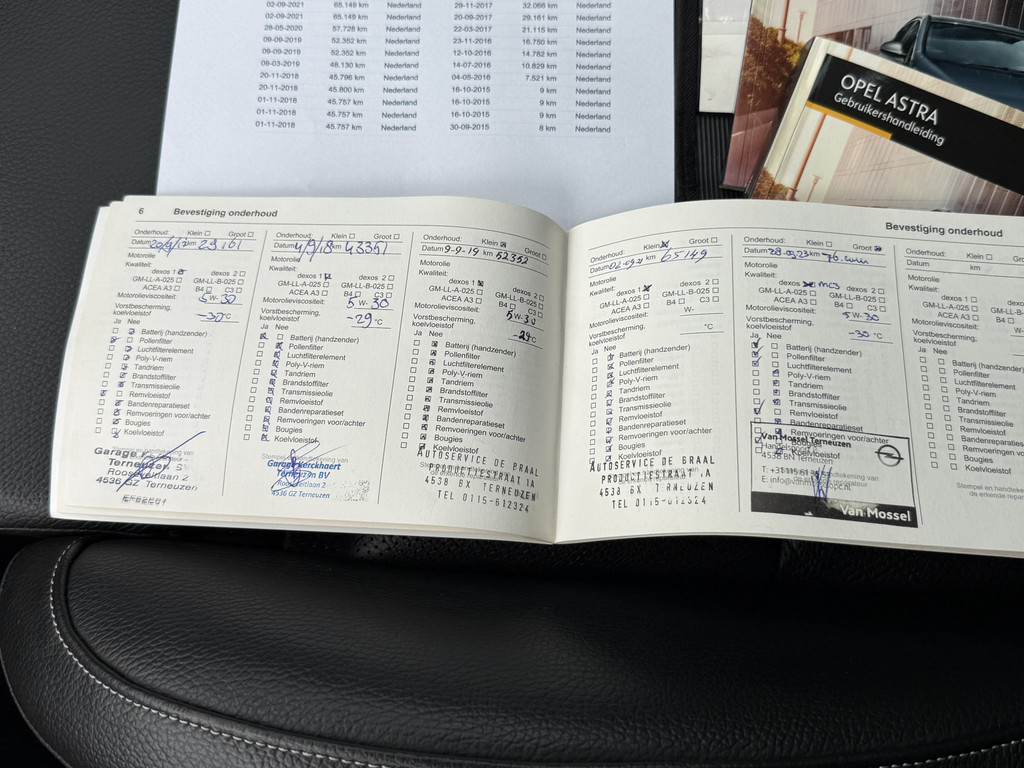 02-09-2021 65.149 km Nederland 29-11-2017 32.066 km Nederland
02-09-2021 65.149 km Nederland 20-09-2017 29.161 km Nederland
28-05-2020 57.728 km Nederland 22-03-2017 21.115 km Nederland
09-09-2019 52.352 km Nederland 23-11-2016 16.750 km Nederland
09-09-2019 52.352 km Nederland 12-10-2016 14.782 km Nederland
09-03-2019 48.130 km Nederland 14-07-2016 10.829 km Nederland
20-11-2018 45.796 km Nederland 04-05-2016 7.521 km Nederland
20-11-2018 45.800 km Nederland 16-10-2015 9 km Nederland
01-11-2018 45.757 km Nederland 16-10-2015 9 km Nederland
01-11-2018 45.757 km Nederland 16-10-2015 9 km Nederland
01-11-2018 45.757 km Nederland 30-09-2015 8 km Nederland
OPEL ASTRA
Gebruikershandleiding
6 Bevestiging onderhoud
Onderhoud: Klein Groot
Datum 20/9/17 km 29161
Motorolie
Kwaliteit:
dexos 1 dexos 2
GM-LL-A-025 GM-LL-B-025
ACEA A3 B4 C3
Motorolieviscositeit: 5 W- 30
Vorstbescherming,
koelvloeistof -30 °C
Ja Nee
Batterij (handzender)
Pollenfilter
Luchtfilterelement
Poly-V-riem
Tandriem
Brandstoffilter
Transmissieolie
Remvloeistof
Bandenreparatieset
Remvoeringen voor/achter
Bougies
Koelvloeistof
Garage
Terneuzen
4536 GZ Terneuzen
Onderhoud: Klein Groot
Datum 4/9/18 km 43351
Motorolie
Kwaliteit:
dexos 1 dexos 2
GM-LL-A-025 GM-LL-B-025
ACEA A3 B4 C3
Motorolieviscositeit: 5 W- 30
Vorstbescherming,
koelvloeistof -29 °C
Ja Nee
Batterij (handzender)
Pollenfilter
Luchtfilterelement
Poly-V-riem
Tandriem
Brandstoffilter
Transmissieolie
Remvloeistof
Bandenreparatieset
Remvoeringen voor/achter
Bougies
Koelvloeistof
Garage Kerckhaert
Terneuzen BV
Roosveltlaan 2
4536 GZ Terneuzen
Onderhoud: Klein Groot
Datum 9-9-19 km 52352
Motorolie
Kwaliteit:
dexos 1 dexos 2
GM-LL-A-025 GM-LL-B-025
ACEA A3 B4 C3
Motorolieviscositeit: 5 W- 30
Vorstbescherming,
koelvloeistof -29 °C
Ja Nee
Batterij (handzender)
Pollenfilter
Luchtfilterelement
Poly-V-riem
Tandriem
Brandstoffilter
Transmissieolie
Remvloeistof
Bandenreparatieset
Remvoeringen voor/achter
Bougies
Koelvloeistof
AUTOSERVICE DE BRAAL
PRODUCTIESTRAAT 1A
4538 BX TERNEUZEN
TEL 0115-612324
Bevestiging onderhoud
Onderhoud: Klein Groot
Datum 02-09-21 km 65149
Motorolie
Kwaliteit: dexos 1 dexos 2
GM-LL-A-025 GM-LL-B-025
ACEA A3 B4 C3
Motorolieviscositeit: W-
Vorstbescherming,
koelvloeistof °C
Ja Nee
Batterij (handzender)
Pollenfilter
Luchtfilterelement
Poly-V-riem
Tandriem
Brandstoffilter
Transmissieolie
Remvloeistof
Bandenreparatieset
Remvoeringen voor/achter
Bougies
Koelvloeistof
AUTOSERVICE DE BRAAL
PRODUCTIESTRAAT 1A
4538 BX TERNEUZEN
TEL 0115-612324
Onderhoud: Klein Groot
Datum 28-03-23 km
Motorolie
Kwaliteit:
dexos dexos 2
GM-LL-A-025 GM-LL-B-025
ACEA A3 B4 C3
Motorolieviscositeit: 5 W- 30
Vorstbescherming,
koelvloeistof -30 °C
Ja Nee
Batterij (handzender)
Pollenfilter
Luchtfilterelement
Poly-V-riem
Tandriem
Brandstoffilter
Transmissieolie
Remvloeistof
Bandenreparatieset
Remvoeringen voor/achter
Bougies
Koelvloeistof
Van Mossel Terneuzen
4538 BN Terneuzen
Van Mossel
Onderhoud: Klein Groot
Datum km
Motorolie
Kwaliteit:
dexos 1
GM-LL-A-025 GM-LL-B
ACEA A3 B4
Motorolieviscositeit: W-
Vorstbescherming,
koelvloeistof
Ja Nee
Batterij (handzender)
Pollenfilter
Luchtfilterelement
Poly-V-riem
Tandriem
Brandstoffilter
Transmissieolie
Remvloeistof
Bandenreparatieset
Remvoeringen voor/ach
Bougies
Koelvloeistof
Stempel en handteke
de erkende repar